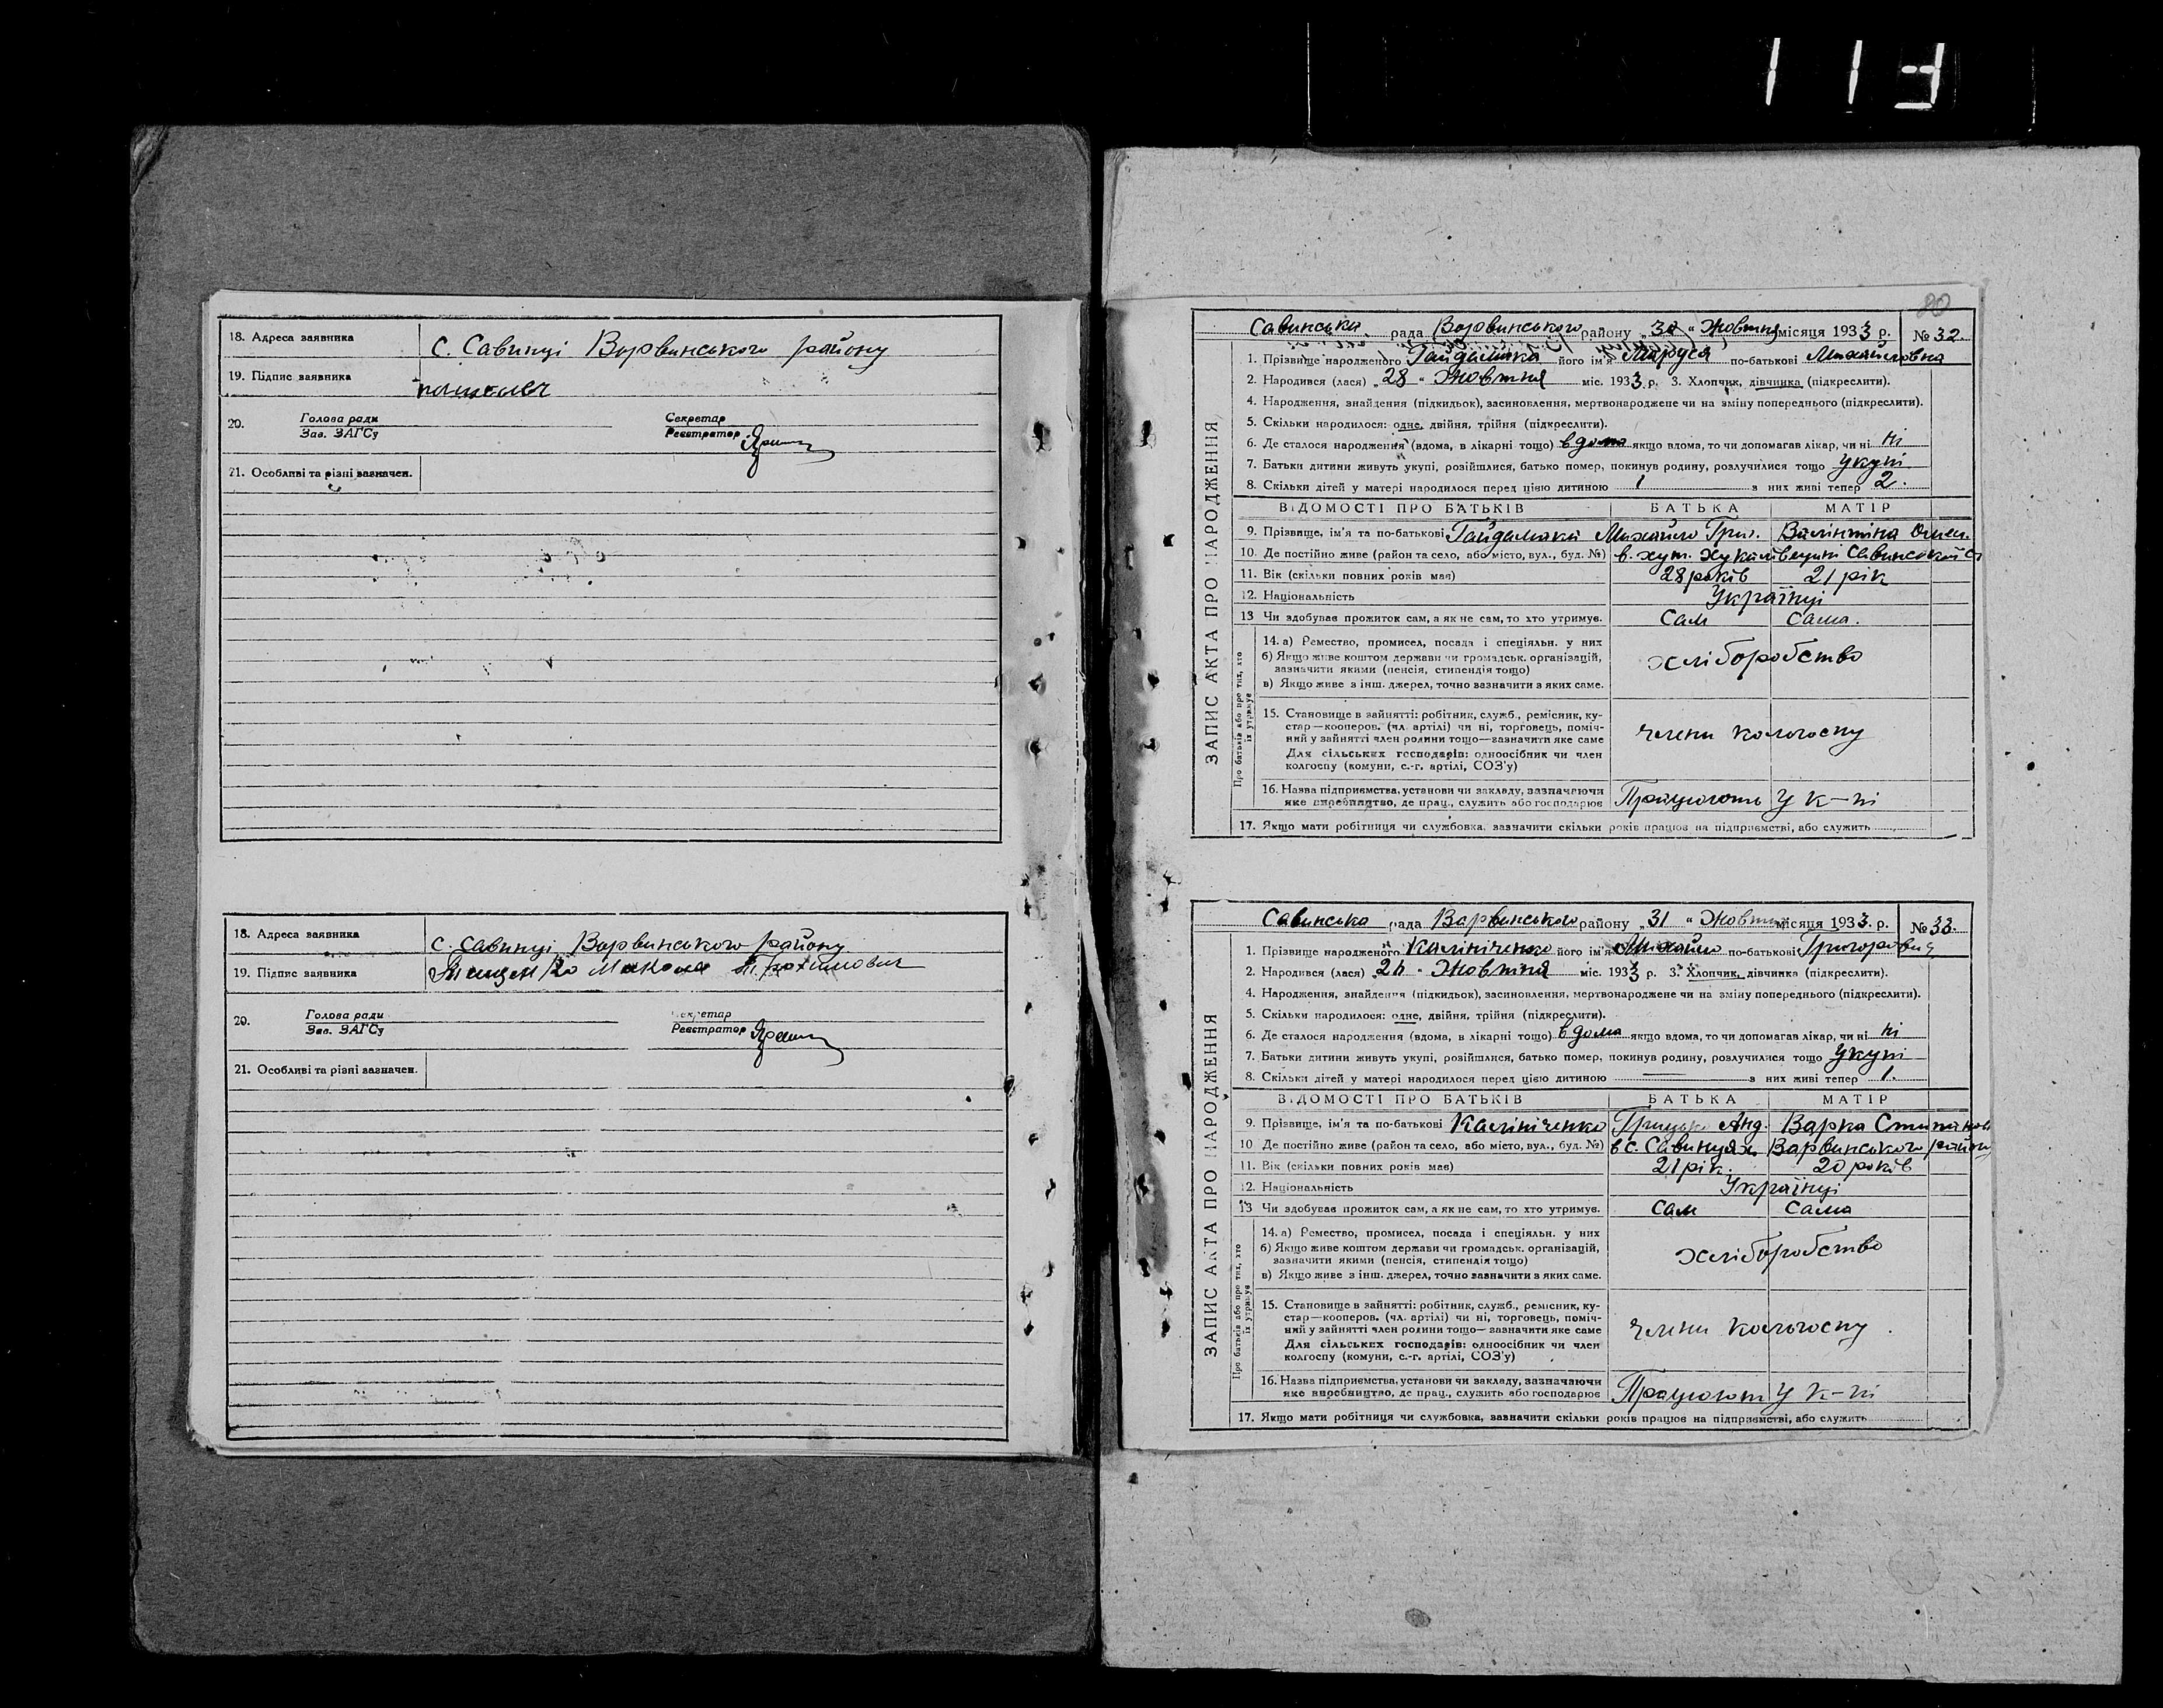 113
18. Адреса заявника с. Савинці Варвинського району
19. Підпис заявника
20. Голова ради Секретар
Зав. ЗАГСу Реєстратор
21. Особливі та різні зазначен.
18. Адреса заявника с. Савинці Варвинського району
19. Підпис заявника Микола
20. Голова ради Секретар
Зав. ЗАГСу Реєстратор
21. Особливі та різні зазначен.
80
ЗАПИС АКТА ПРО НАРОДЖЕННЯ
Савинська рада Варвинського району „30“ Жовтня місяця 1933 р. № 32.
1. Прізвище народженого Гайдамака його ім'я Маруся по-батькові Михайловна
2. Народився (лася) „28“ Жовтня міс. 1933 р. 3. Хлопчик, дівчинка (підкреслити).
4. Народження, знайдення (підкидьок), засиновлення, мертвонароджене чи на зміну попереднього (підкреслити).
5. Скільки народилося: одне, двійня, трійня (підкреслити).
6. Де сталося народження (вдома, в лікарні тощо) вдома якщо вдома, то чи допомагав лікар, чи ні ні
7. Батьки дитини живуть укупі, розійшлися, батько помер, покинув родину, розлучилися тощо укупі
8. Скільки дітей у матері народилося перед цією дитиною 1 з них живі тепер 2.
ВІДОМОСТІ ПРО БАТЬКІВ БАТЬКА МАТІР
9. Прізвище, ім'я та по-батькові Гайдамака Михайло Григ. Валінтіна
10. Де постійно живе (район та село, або місто, вул., буд. №) в. хут.
11. Вік (скільки повних років має) 28 років 21 рік
12. Національність Українці
13 Чи здобуває прожиток сам, а як не сам, то хто утримує. Сам Сама.
Про батьків або про тих, хто їх утримує
14. а) Ремество, промисел, посада і спеціяльн. у них хліборобство
б) Якщо живе коштом держави чи громадськ. організацій,
зазначити якими (пенсія, стипендія тощо)
в) Якщо живе з інш. джерел, точно зазначити з яких саме.
15. Становище в зайнятті: робітник, служб., ремісник, ку-
стар—кооперов. (чл. артілі) чи ні, торговець, поміч-
ний у зайнятті член родини тощо—зазначити яке саме члени колгоспу
Для сільських господарів: одноосібник чи член
колгоспу (комуни, с.-г. артілі, СОЗ'у)
16. Назва підприємства, установи чи закладу, зазначаючи Працюють у к-пі
яке виробництво, де прац., служить або господарює
17. Якщо мати робітниця чи службовка, зазначити скільки років працює на підприємстві, або служить
ЗАПИС АКТА ПРО НАРОДЖЕННЯ
Савинська рада Варвинського району „31“ Жовтня місяця 1933 р. № 33.
1. Прізвище народженого Калініченко його ім'я Михайло по-батькові Григорович
2. Народився (лася) Жовтня міс. 1933 р. 3. Хлопчик, дівчинка (підкреслити).
4. Народження, знайдення (підкидьок), засиновлення, мертвонароджене чи на зміну попереднього (підкреслити).
5. Скільки народилося: одне, двійня, трійня (підкреслити).
6. Де сталося народження (вдома, в лікарні тощо) вдома якщо вдома, то чи допомагав лікар, чи ні ні
7. Батьки дитини живуть укупі, розійшлися, батько помер, покинув родину, розлучилися тощо укупі
8. Скільки дітей у матері народилося перед цією дитиною — з них живі тепер 1.
ВІДОМОСТІ ПРО БАТЬКІВ БАТЬКА МАТІР
9. Прізвище, ім'я та по-батькові Калініченко Грицько Анд. Варка
10 Де постійно живе (район та село, або місто, вул., буд. №) в с. Савинцях Варвинського району
11. Вік (скільки повних років має) 21 рік. 20 років
12. Національність Українці
13 Чи здобуває прожиток сам, а як не сам, то хто утримує. Сам Сама
Про батьків або про тих, хто їх утримує
14. а) Ремество, промисел, посада і спеціяльн. у них
б) Якщо живе коштом держави чи громадськ. організацій, хліборобство
зазначити якими (пенсія, стипендія тощо)
в) Якщо живе з інш. джерел, точно зазначити з яких саме.
15. Становище в зайнятті: робітник, служб., ремісник, ку-
стар—кооперов. (чл. артілі) чи ні, торговець, поміч-
ний у зайнятті член родини тощо—зазначити яке саме члени колгоспу.
Для сільських господарів: одноосібник чи член
колгоспу (комуни, с.-г. артілі, СОЗ'у)
16. Назва підприємства, установи чи закладу, зазначаючи
яке виробництво, де прац., служить або господарює Працюют у к-пі
17. Якщо мати робітниця чи службовка, зазначити скільки років працює на підприємстві, або служить